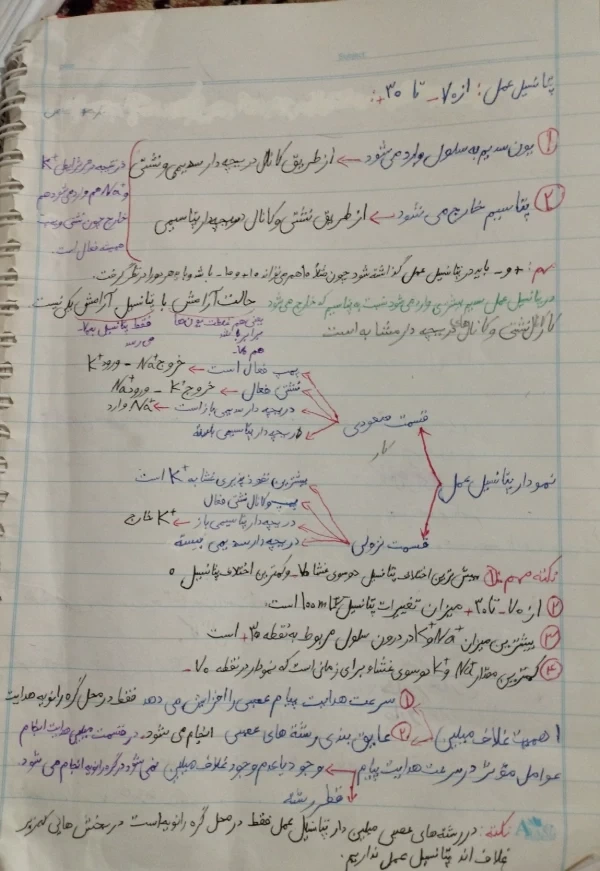 پتانسیل عمل: از ۷۰- تا ۳۰+:
① یون سدیم به سلول وارد می‌شود ← از طریق کانال دریچه دار سدیمی و نشتی
② پتاسیم خارج می شود ← از طریق نشتی و کانال دریچه‌دار پتاسیمی
در نتیجه در هر شرایطی K+
و Na+ هم وارد می‌شود هم
خارج چون نشتی و پمپ
همیشه فعال است.
مهم: + و - باید در پتانسیل عمل گذاشته شود چون مثلا ما هم می‌تواند ۱۰+ و ۱۰- باشد و باید هر دو را در نظر گرفت.
در پتانسیل عمل سدیم بیشتری وارد می‌شود نسبت به پتاسیم که خارج می‌شود
حالت آرامش با پتانسیل آرامش یکی نیست.
کانال نشتی و کانال‌های دریچه دار مشابه است
یعنی هم غلظت یون‌ها برابر باشد هم ۷۰-
فقط پتانسیل به ۷۰- می‌رسد
نمودار پتانسیل عمل
قسمت صعودی
پمپ فعال است ← خروج Na+ - ورود K+
نشتی فعال ← خروج K+ - ورود Na+
دریچه دار سدیمی باز است ← Na+ وارد
دریچه دار پتاسیمی بسته
قسمت نزولی
بیشترین نفوذپذیری غشا به K+ است
پمپ و کانال نشتی فعال
دریچه دار پتاسیمی باز ← K+ خارج
دریچه دار سدیمی بسته
نکته مهم: ① بیش ترین اختلاف پتانسیل دو سوی غشا ۷۰- و کمترین اختلاف پتانسیل ۰
② از ۷۰- تا ۳۰+ میزان تغییرات پتانسیل ۱۰۰ است.
③ بیشترین میزان Na+ و K+ در درون سلول مربوط به نقطه ۳۰+ است
④ کمترین مقدار Na+ و K+ دو سوی غشاء برای زمانی است که نمودار در نقطه ۷۰-
اهمیت غلاف میلین
① سرعت هدایت پیام عصبی را افزایش می دهد فقط در محل گره رانویه هدایت
② عایق بندی رشته های عصبی انجام می شود. در قسمت میلین هدایت انجام
عوامل مؤثر در سرعت هدایت پیام ← وجود یا عدم وجود غلاف میلین نمی شود در گره رانویه انجام می شود.
قطر رشته
نکته: در رشته‌های عصبی میلین دار پتانسیل عمل فقط در محل گره رانویه است در بخش هایی که زیر
غلاف اند پتانسیل عمل نداریم.